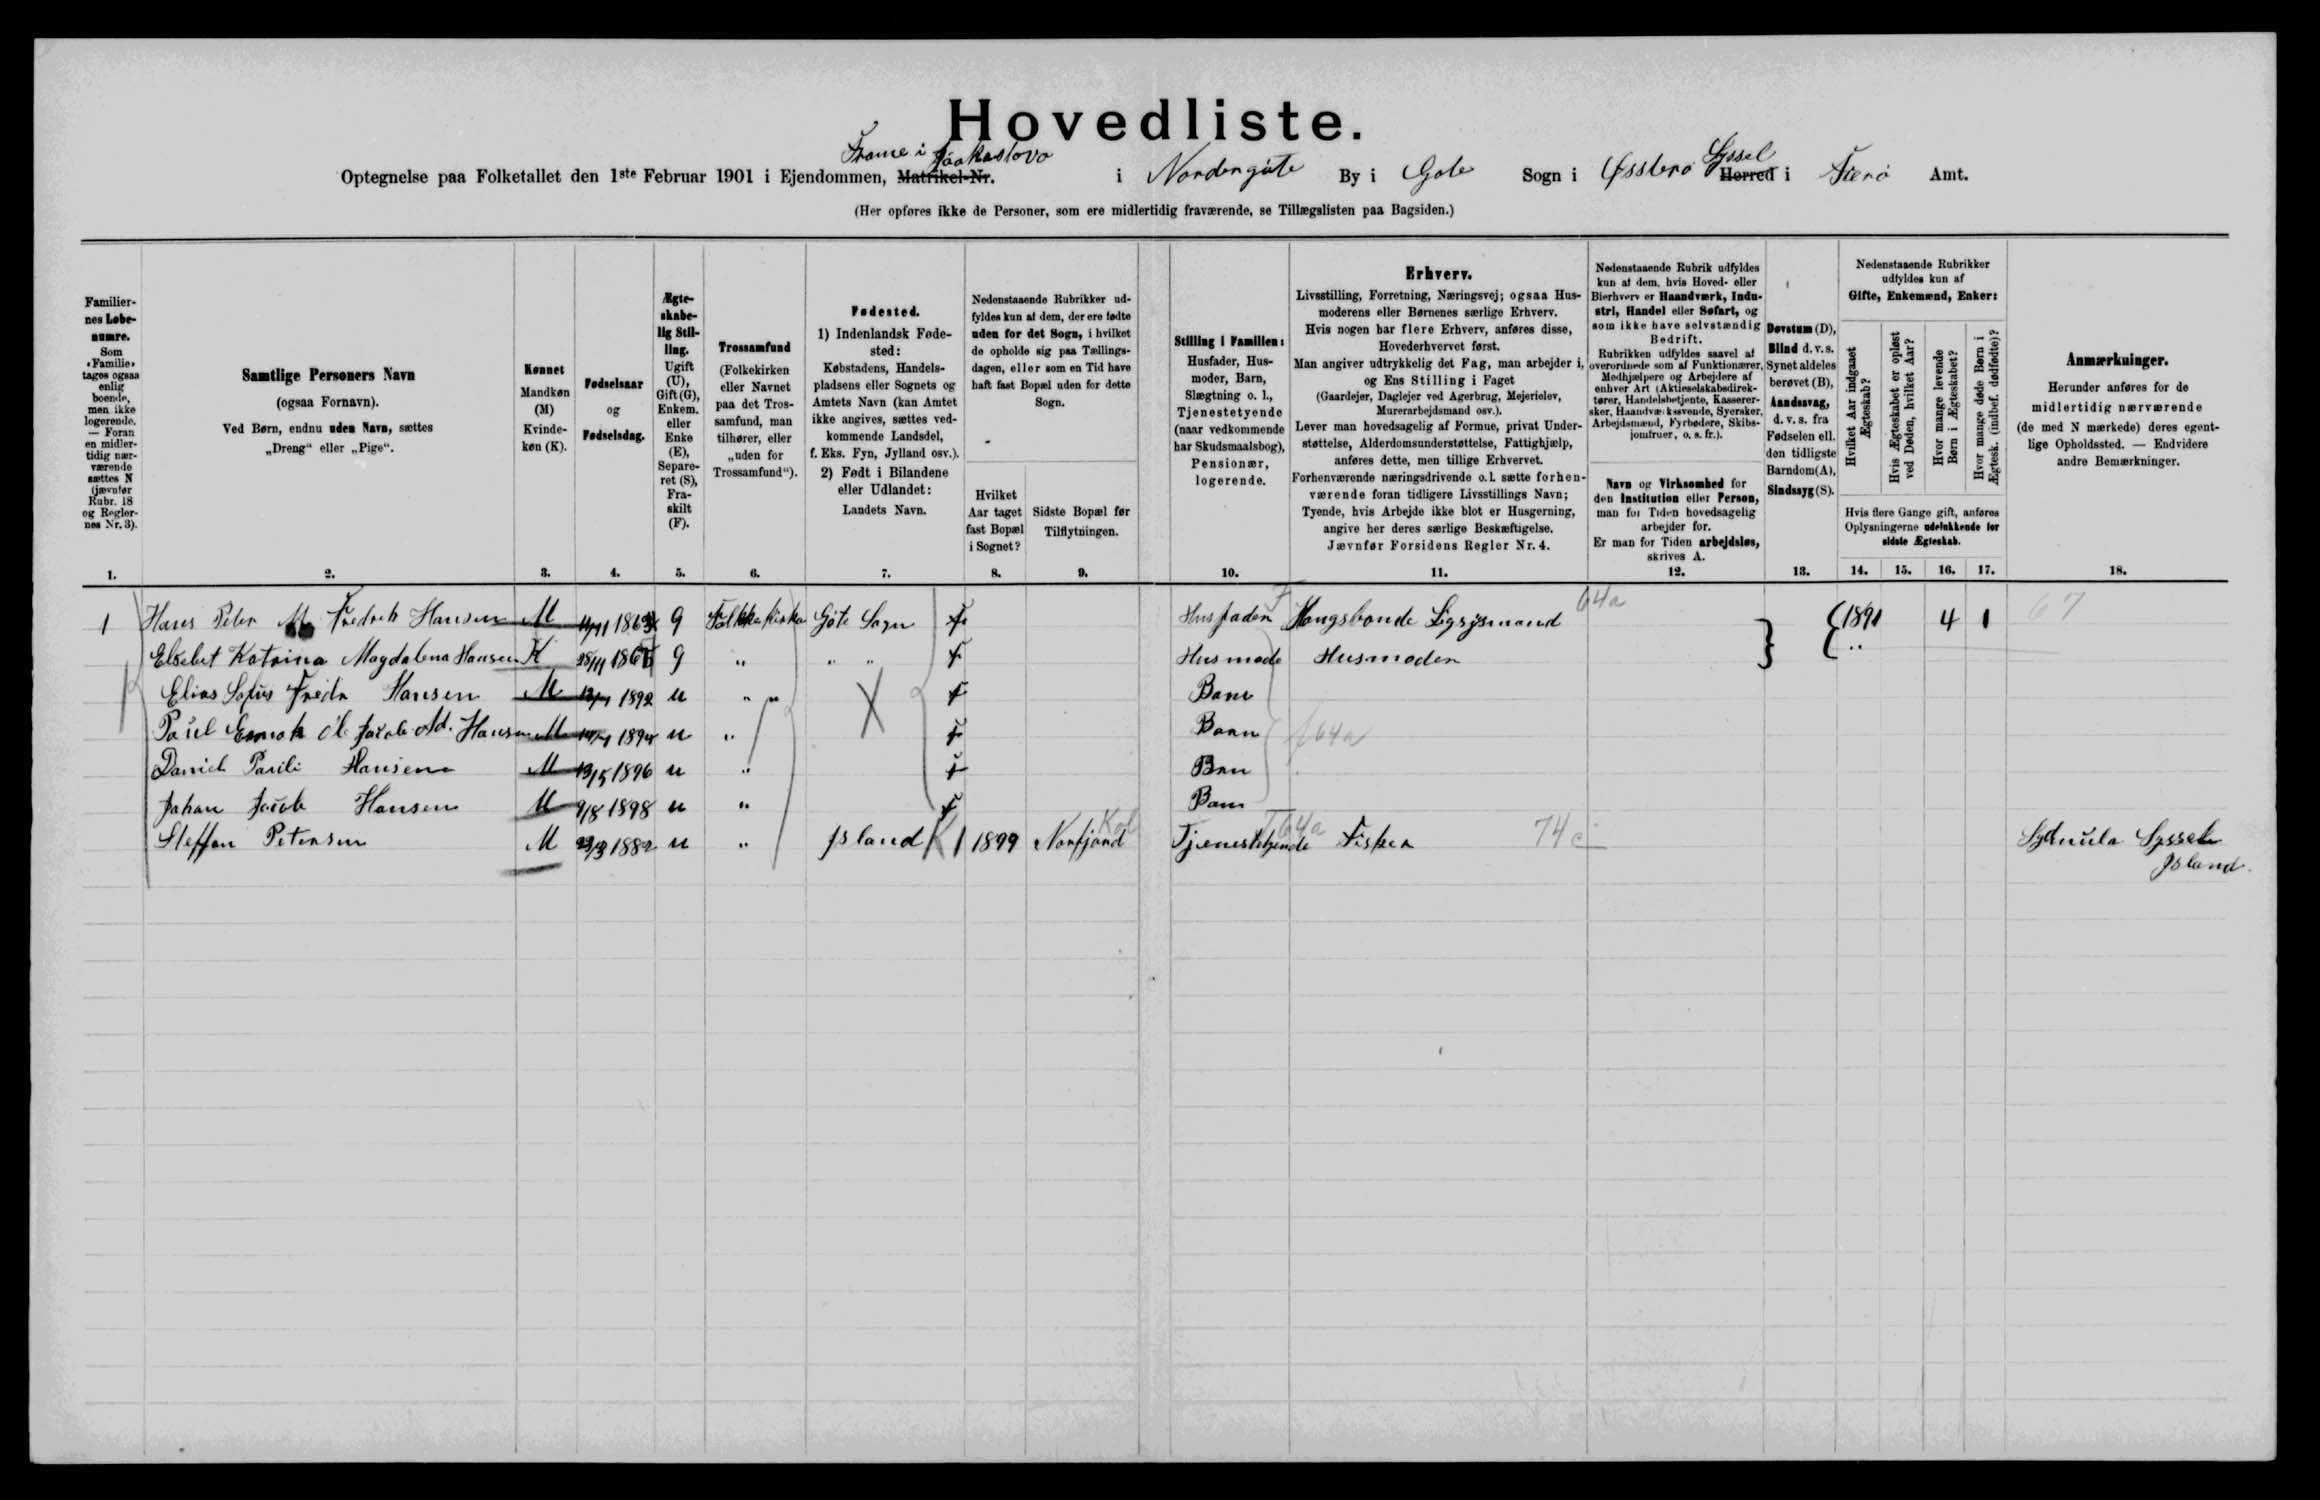 Hovedliste.
Frame i Jaakastovo
Optegnelse paa Folketallet den 1ste Februar 1901 i Ejendommen, Matrikel-Nr. i Nordregöte By i Gøte Sogn i Østerø Syssel Herred i Færø Amt.
(Her opføres ikke de Personer, som ere midlertidig fraværende, se Tillægslisten paa Bagsiden.)
Familiernes Løbenumre.
Som «Familie» tages ogsaa enlig boende, men ikke logerende. — Foran en midlertidig nærværende sættes N (jævnfør Rubr. 18 og Reglernes Nr. 3).
1.
Samtlige Personers Navn
(ogsaa Fornavn).
Ved Børn, endnu uden Navn, sættes
„Dreng“ eller „Pige“.
2.
Kønnet
Mandkøn (M)
Kvindekøn (K).
3.
Fødselsaar
og
Fødselsdag.
4.
Ægteskabelig Stilling.
Ugift (U), Gift (G), Enkem. eller Enke (E), Separeret (S), Fraskilt (F).
5.
Trossamfund
(Folkekirken eller Navnet paa det Trossamfund, man tilhører, eller „uden for Trossamfund“).
6.
Fødested.
1) Indenlandsk Fødested:
Købstadens, Handelspladsens eller Sognets og Amtets Navn (kan Amtet ikke angives, sættes vedkommende Landsdel, f. Eks. Fyn, Jylland osv.).
2) Født i Bilandene eller Udlandet:
Landets Navn.
7.
Nedenstaaende Rubrikker udfyldes kun af dem, der ere fødte uden for det Sogn, i hvilket de opholde sig paa Tællingsdagen, eller som en Tid have haft fast Bopæl uden for dette Sogn.
Hvilket Aar taget fast Bopæl i Sognet?
8.
Sidste Bopæl før Tilflytningen.
9.
Stilling i Familien:
Husfader, Husmoder, Barn, Slægtning o. l., Tjenestetyende (naar vedkommende har Skudsmaalsbog), Pensionær, logerende.
10.
Erhverv.
Livsstilling, Forretning, Næringsvej; ogsaa Husmoderens eller Børnenes særlige Erhverv.
Hvis nogen har flere Erhverv, anføres disse, Hovederhvervet først.
Man angiver udtrykkelig det Fag, man arbejder i, og Ens Stilling i Faget
(Gaardejer, Daglejer ved Agerbrug, Mejerielev, Murerarbejdsmand osv.).
Lever man hovedsagelig af Formue, privat Understøttelse, Alderdomsunderstøttelse, Fattighjælp, anføres dette, men tillige Erhvervet.
Forhenværende næringsdrivende o. l. sætte forhenværende foran tidligere Livsstillings Navn;
Tyende, hvis Arbejde ikke blot er Husgerning, angive her deres særlige Beskæftigelse.
Jævnfør Forsidens Regler Nr. 4.
11.
Nedenstaaende Rubrik udfyldes kun af dem, hvis Hoved- eller Bierhverv er Haandværk, Industri, Handel eller Søfart, og som ikke have selvstændig Bedrift.
Rubrikken udfyldes saavel af overordnede som af Funktionærer, Medhjælpere og Arbejdere af enhver Art (Aktieselskabsdirektører, Handelsbetjente, Kasserersker, Haandværkssvende, Syersker, Arbejdsmænd, Fyrbødere, Skibsjomfruer, o. s. fr.).
Navn og Virksomhed for den Institution eller Person, man for Tiden hovedsagelig arbejder for.
Er man for Tiden arbejdsløs, skrives A.
12.
Døvstum (D),
Blind d. v. s. Synet aldeles berøvet (B),
Aandssvag, d. v. s. fra Fødselen ell. den tidligste Barndom (A),
Sindssyg (S).
13.
Nedenstaaende Rubrikker udfyldes kun af
Gifte, Enkemænd, Enker:
Hvilket Aar indgaaet Ægteskab?
Hvis Ægteskabet er opløst ved Døden, hvilket Aar?
Hvor mange levende Børn i Ægteskabet?
Hvor mange døde Børn i Ægtesk. (indbef. dødfødte)?
Hvis flere Gange gift, anføres Oplysningerne udelukkende for sidste Ægteskab.
14. 15. 16. 17.
Anmærkninger.
Herunder anføres for de midlertidig nærværende (de med N mærkede) deres egentlige Opholdssted. — Endvidere andre Bemærkninger.
18.
1 Hans Peter Fredrek Hansen M 11/11 1863 g Folkekirke Göte Sogn Husfader Kongsbonde 64a 1891 4 1 67
Elsebet Katrina Magdalena Hansen K 25/11 g " " " Husmode Husmoder "
Elias Sofus Fredr Hansen M 1892 u " " Barn
Paul Enok Ol Jacob Ad. Hansen M 1894 u " Barn 64a
Daniel Pauli Hansen M 13/5 1896 u " Brn
Johan Jacob Hansen M 9/8 1898 u " Barn
Steffan Petersen M 23/3 1882 u " Island K 1 1899 Norfjord Tjenestetyende 64a Fisker 74c Sydmula Syssel
Island.